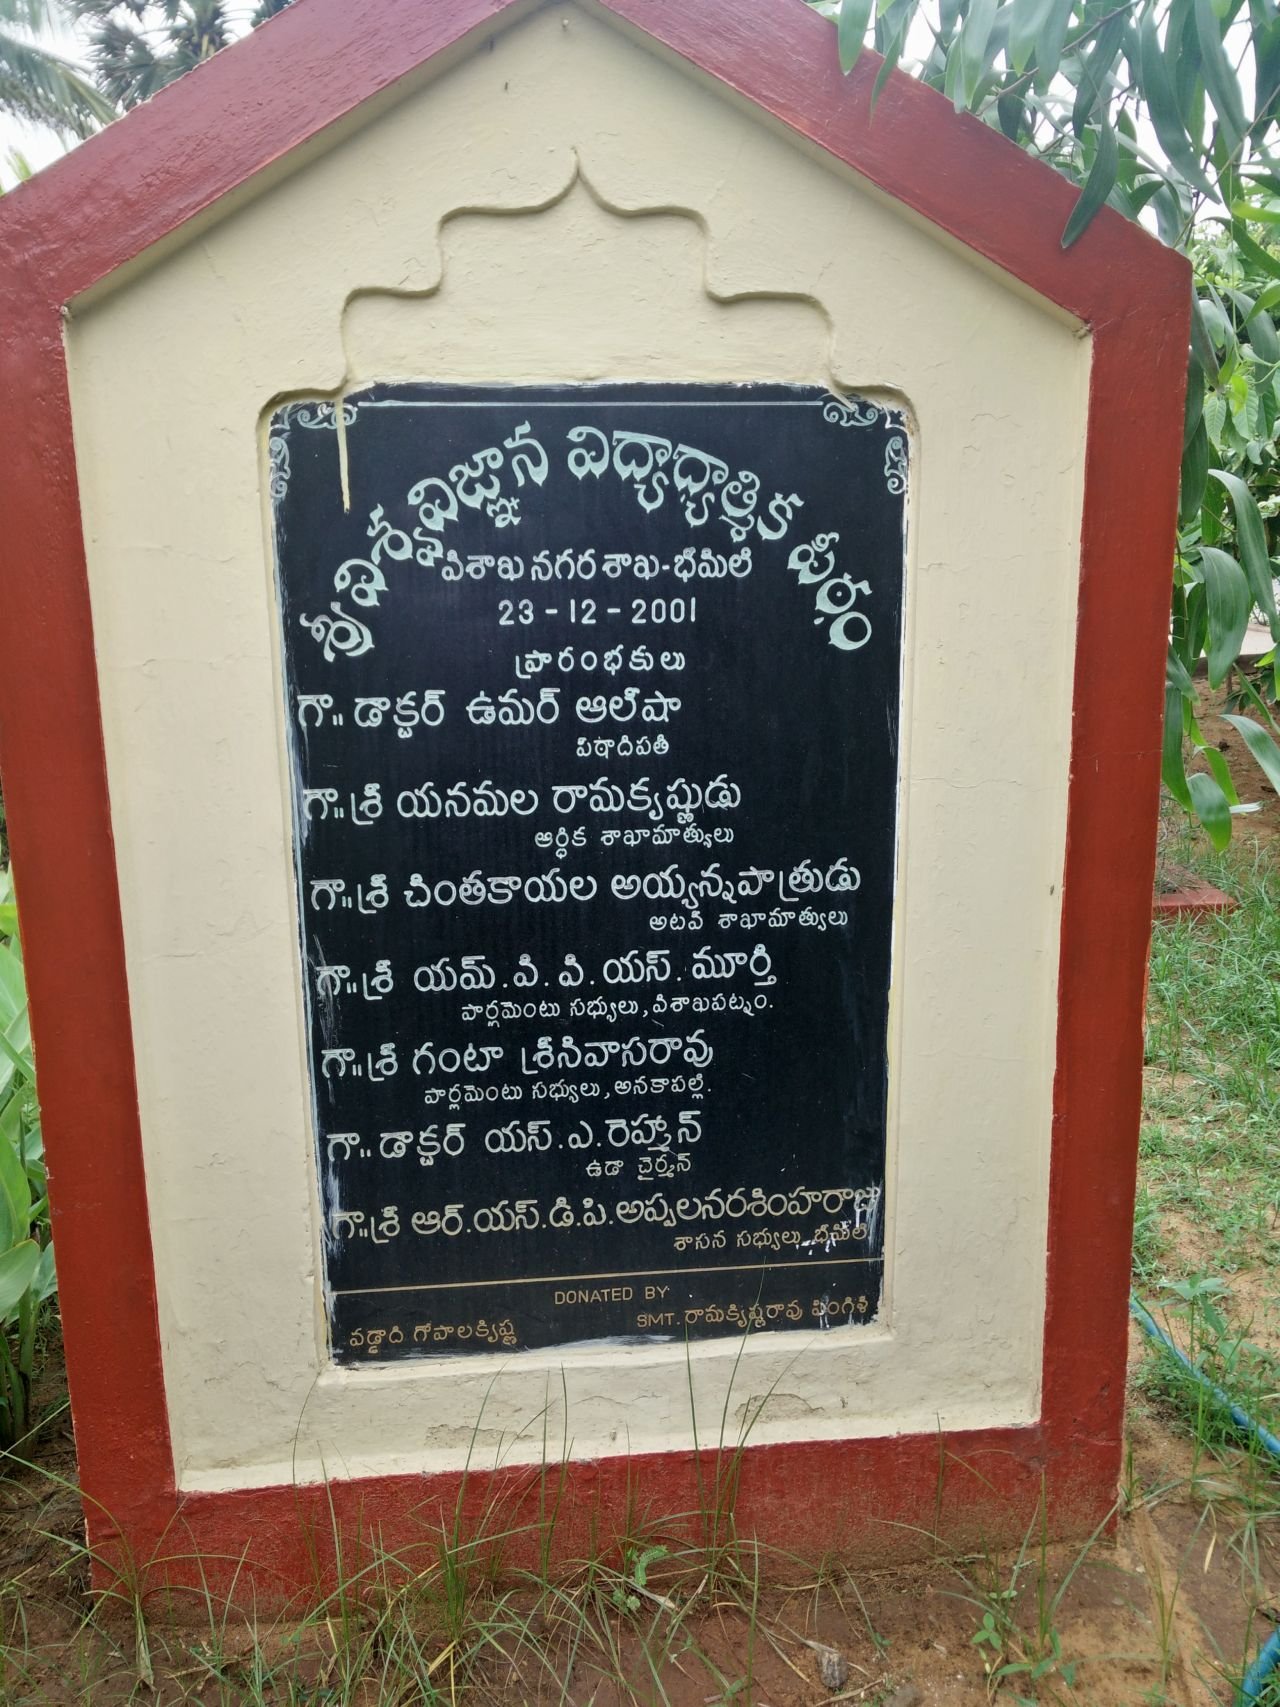 శ్రీ విశ్వవిజ్ఞాన విద్యాధ్యాత్మిక పీఠం
విశాఖ నగర శాఖ-భీమిలి
23-12-2001
ప్రారంభకులు
గౌ॥ డాక్టర్ ఉమర్ ఆలీషా
పిఠాదిపతి
గౌ॥శ్రీ యనమల రామకృష్ణుడు
ఆర్ధిక శాఖామాత్యులు
గౌ॥శ్రీ చింతకాయల అయ్యన్నపాత్రుడు
అటవీ శాఖామాత్యులు
గౌ॥శ్రీ యమ్.వి.వి.యస్.మూర్తి
పార్లమెంటు సభ్యులు,విశాఖపట్నం.
గౌ॥శ్రీ గంటా శ్రీనివాసరావు
పార్లమెంటు సభ్యులు,అనకాపల్లి.
గౌ॥ డాక్టర్ యస్.ఎ.రెహ్మాన్
ఉడా చైర్మన్
గౌ॥శ్రీ ఆర్.యస్.డి.పి.అప్పలనరశింహరాజు
శాసన సభ్యులు,భీమిలి
DONATED BY:
వడ్డాది గోపాలకృిష్ణ SMT.రామకృిష్ణరావు పింగిళి